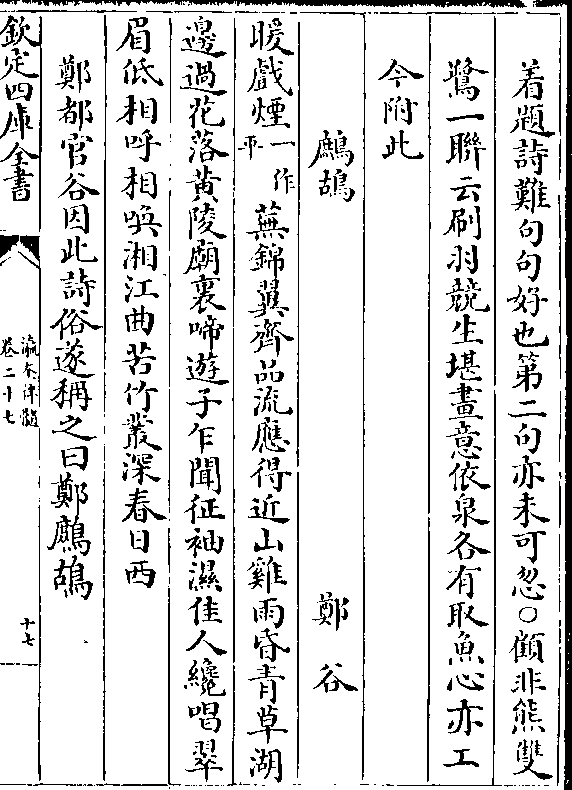 着題詩難句句好也第二句亦未可忽○顧非熊雙
鷺一聯云刷羽競生堪畫意依泉各有取魚心亦工
今附此
鷓鴣　鄭谷
暖戲煙一作平蕪錦翼齊品流應得近山雞雨昏青草湖
邉過花落黄陵廟裏啼遊子乍聞征袖濕佳人纔唱翠
眉低相呼相喚湘江曲苦竹叢深春日西
鄭都官谷因此詩俗遂稱之曰鄭鷓鴣
欽定四庫全書
瀛奎律髓
卷二十七
十七